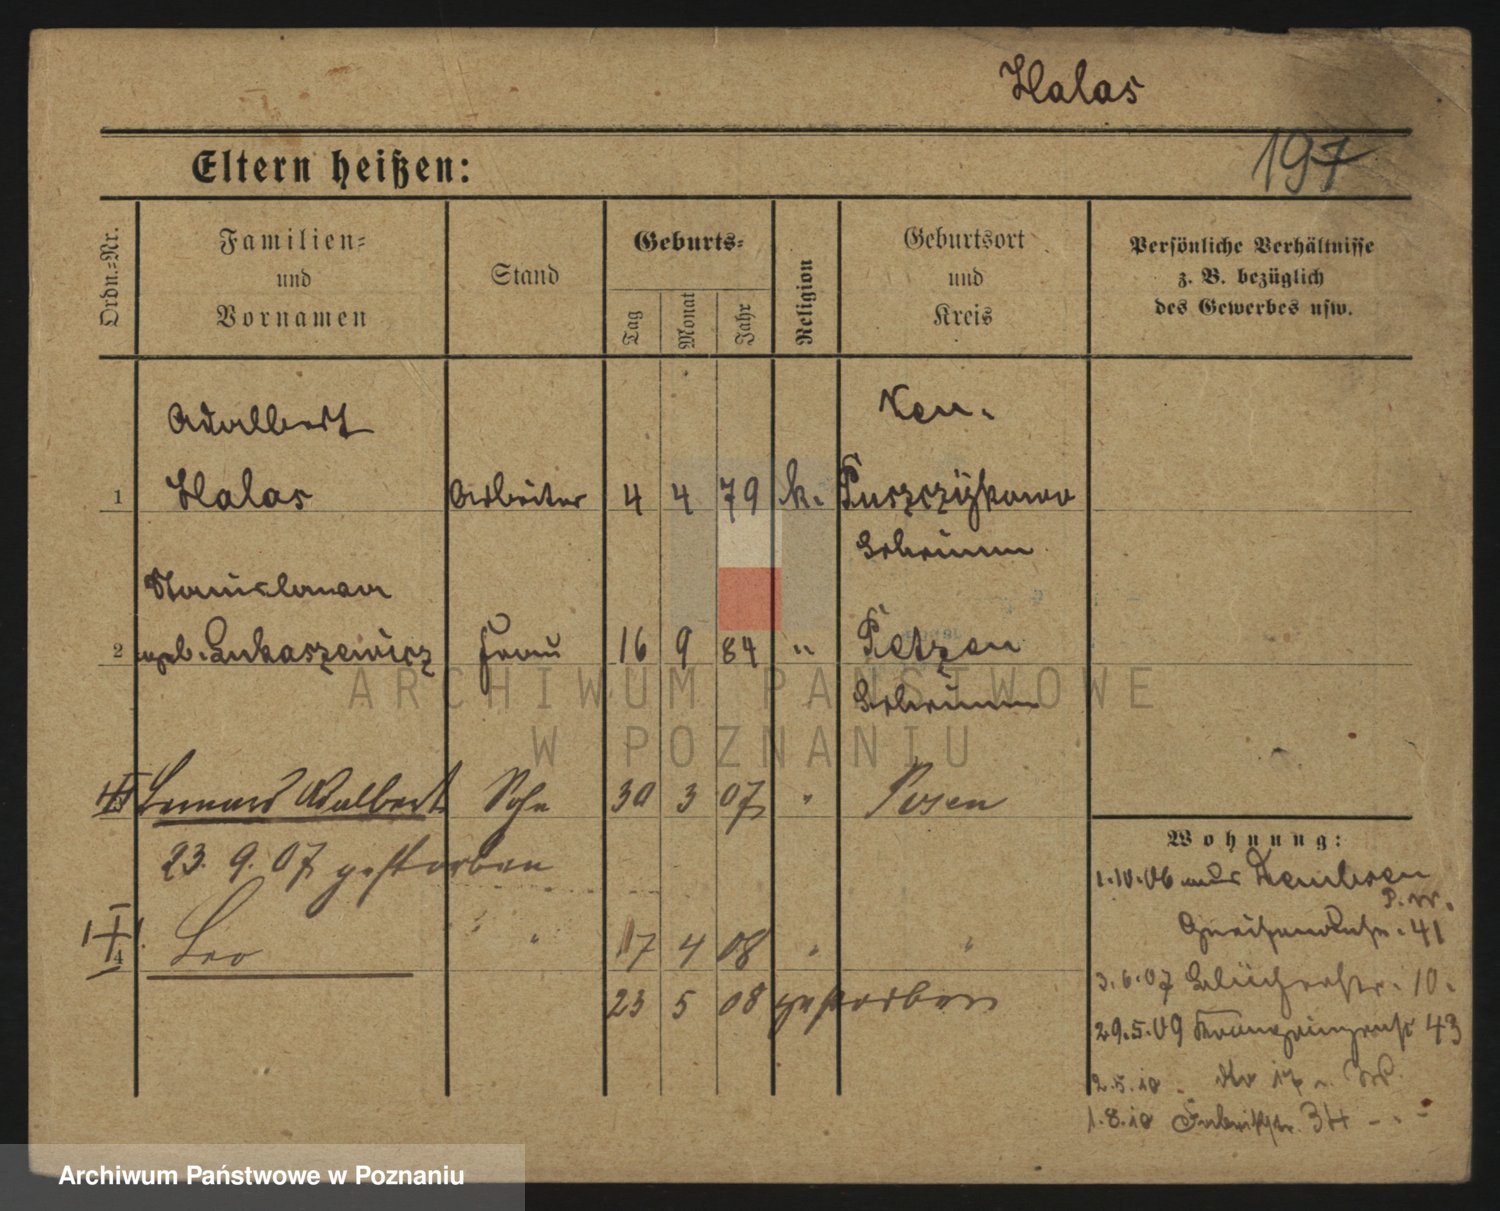 Halas
197
Eltern heißen:
Ordn.-Nr.
Familien-
und
Vornamen
Stand
Geburts-
Tag
Monat
Jahr
Religion
Geburtsort
und
Kreis
Persönliche Verhältnisse
z. B. bezüglich
des Gewerbes usw.
Adalbert
Neu-
1 Halas Arbeiter 4 4 79 k. Puszczykowo
Schrimm
Stanislawa
2 geb. Lukaszewicz Frau 16 9 84 " Petzen
Schrimm
Adalbert Sohn 30 3 07 " Posen
23. 9. 07 gestorben
4 Leo " " 17 4 08 " "
23 5 08 gestorben
Wohnung:
1.10.06 aus Dembsen
P. W.
41
3.6.07 Blücherstr. 10.
29.5.09 Kronprinzenstr 43
2.5.10 do 17
1.8.10 Fabrikstr. 34
ARCHIWUM PAŃSTWOWE
W POZNANIU
Archiwum Państwowe w Poznaniu